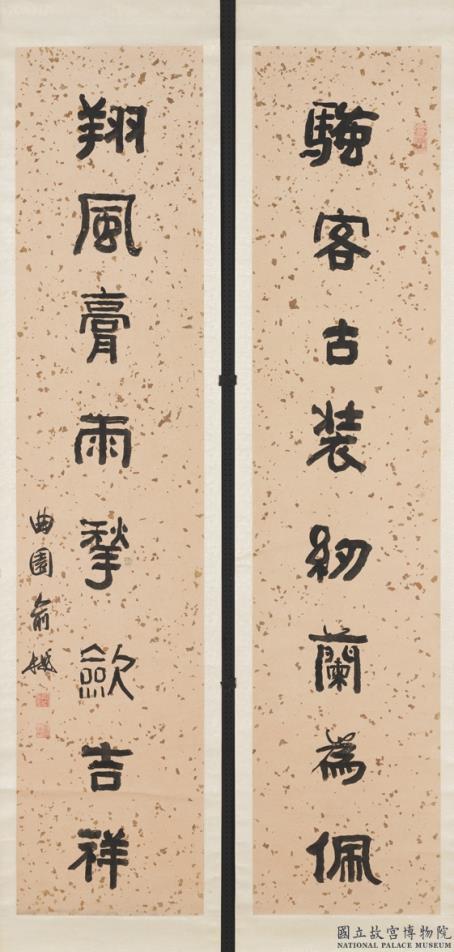 騷客古裝紉蘭為佩
翔風膏雨揫歛吉祥
曲園俞樾
國立故宮博物院
NATIONAL PALACE MUSEUM